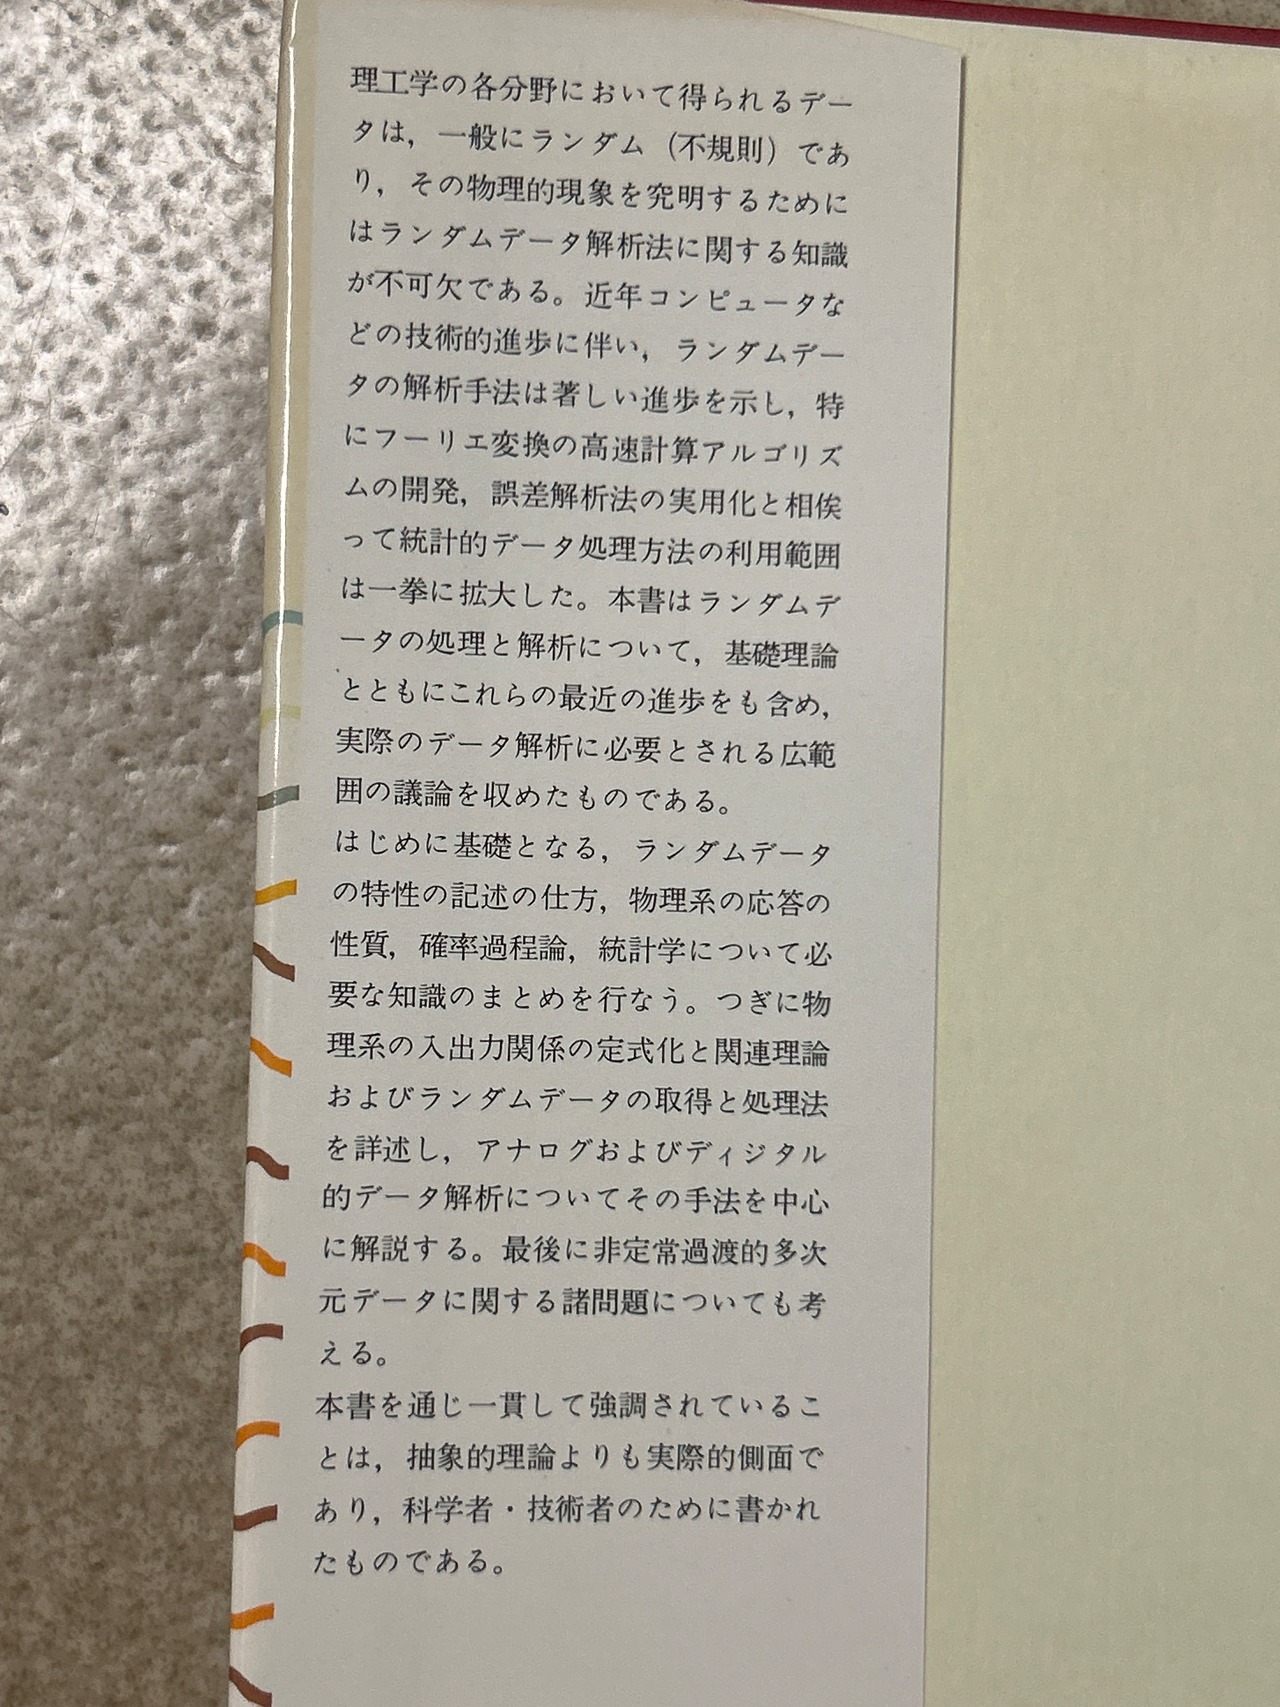 理工学の各分野において得られるデー
タは，一般にランダム（不規則）であ
り，その物理的現象を究明するために
はランダムデータ解析法に関する知識
が不可欠である。近年コンピュータな
どの技術的進歩に伴い，ランダムデー
タの解析手法は著しい進歩を示し，特
にフーリエ変換の高速計算アルゴリズ
ムの開発，誤差解析法の実用化と相俟
って統計的データ処理方法の利用範囲
は一拳に拡大した。本書はランダムデ
ータの処理と解析について，基礎理論
とともにこれらの最近の進歩をも含め，
実際のデータ解析に必要とされる広範
囲の議論を収めたものである。
はじめに基礎となる，ランダムデータ
の特性の記述の仕方，物理系の応答の
性質，確率過程論，統計学について必
要な知識のまとめを行なう。つぎに物
理系の入出力関係の定式化と関連理論
およびランダムデータの取得と処理法
を詳述し，アナログおよびディジタル
的データ解析についてその手法を中心
に解説する。最後に非定常過渡的多次
元データに関する諸問題についても考
える。
本書を通じ一貫して強調されているこ
とは，抽象的理論よりも実際的側面で
あり，科学者・技術者のために書かれ
たものである。